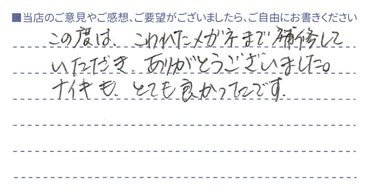 ■当店のご意見やご感想、ご要望がございましたら、ご自由にお書きください
この度は、こわれたメガネまで補修して
いただき、ありがとうございました。
ナイキも、とても良かったです.